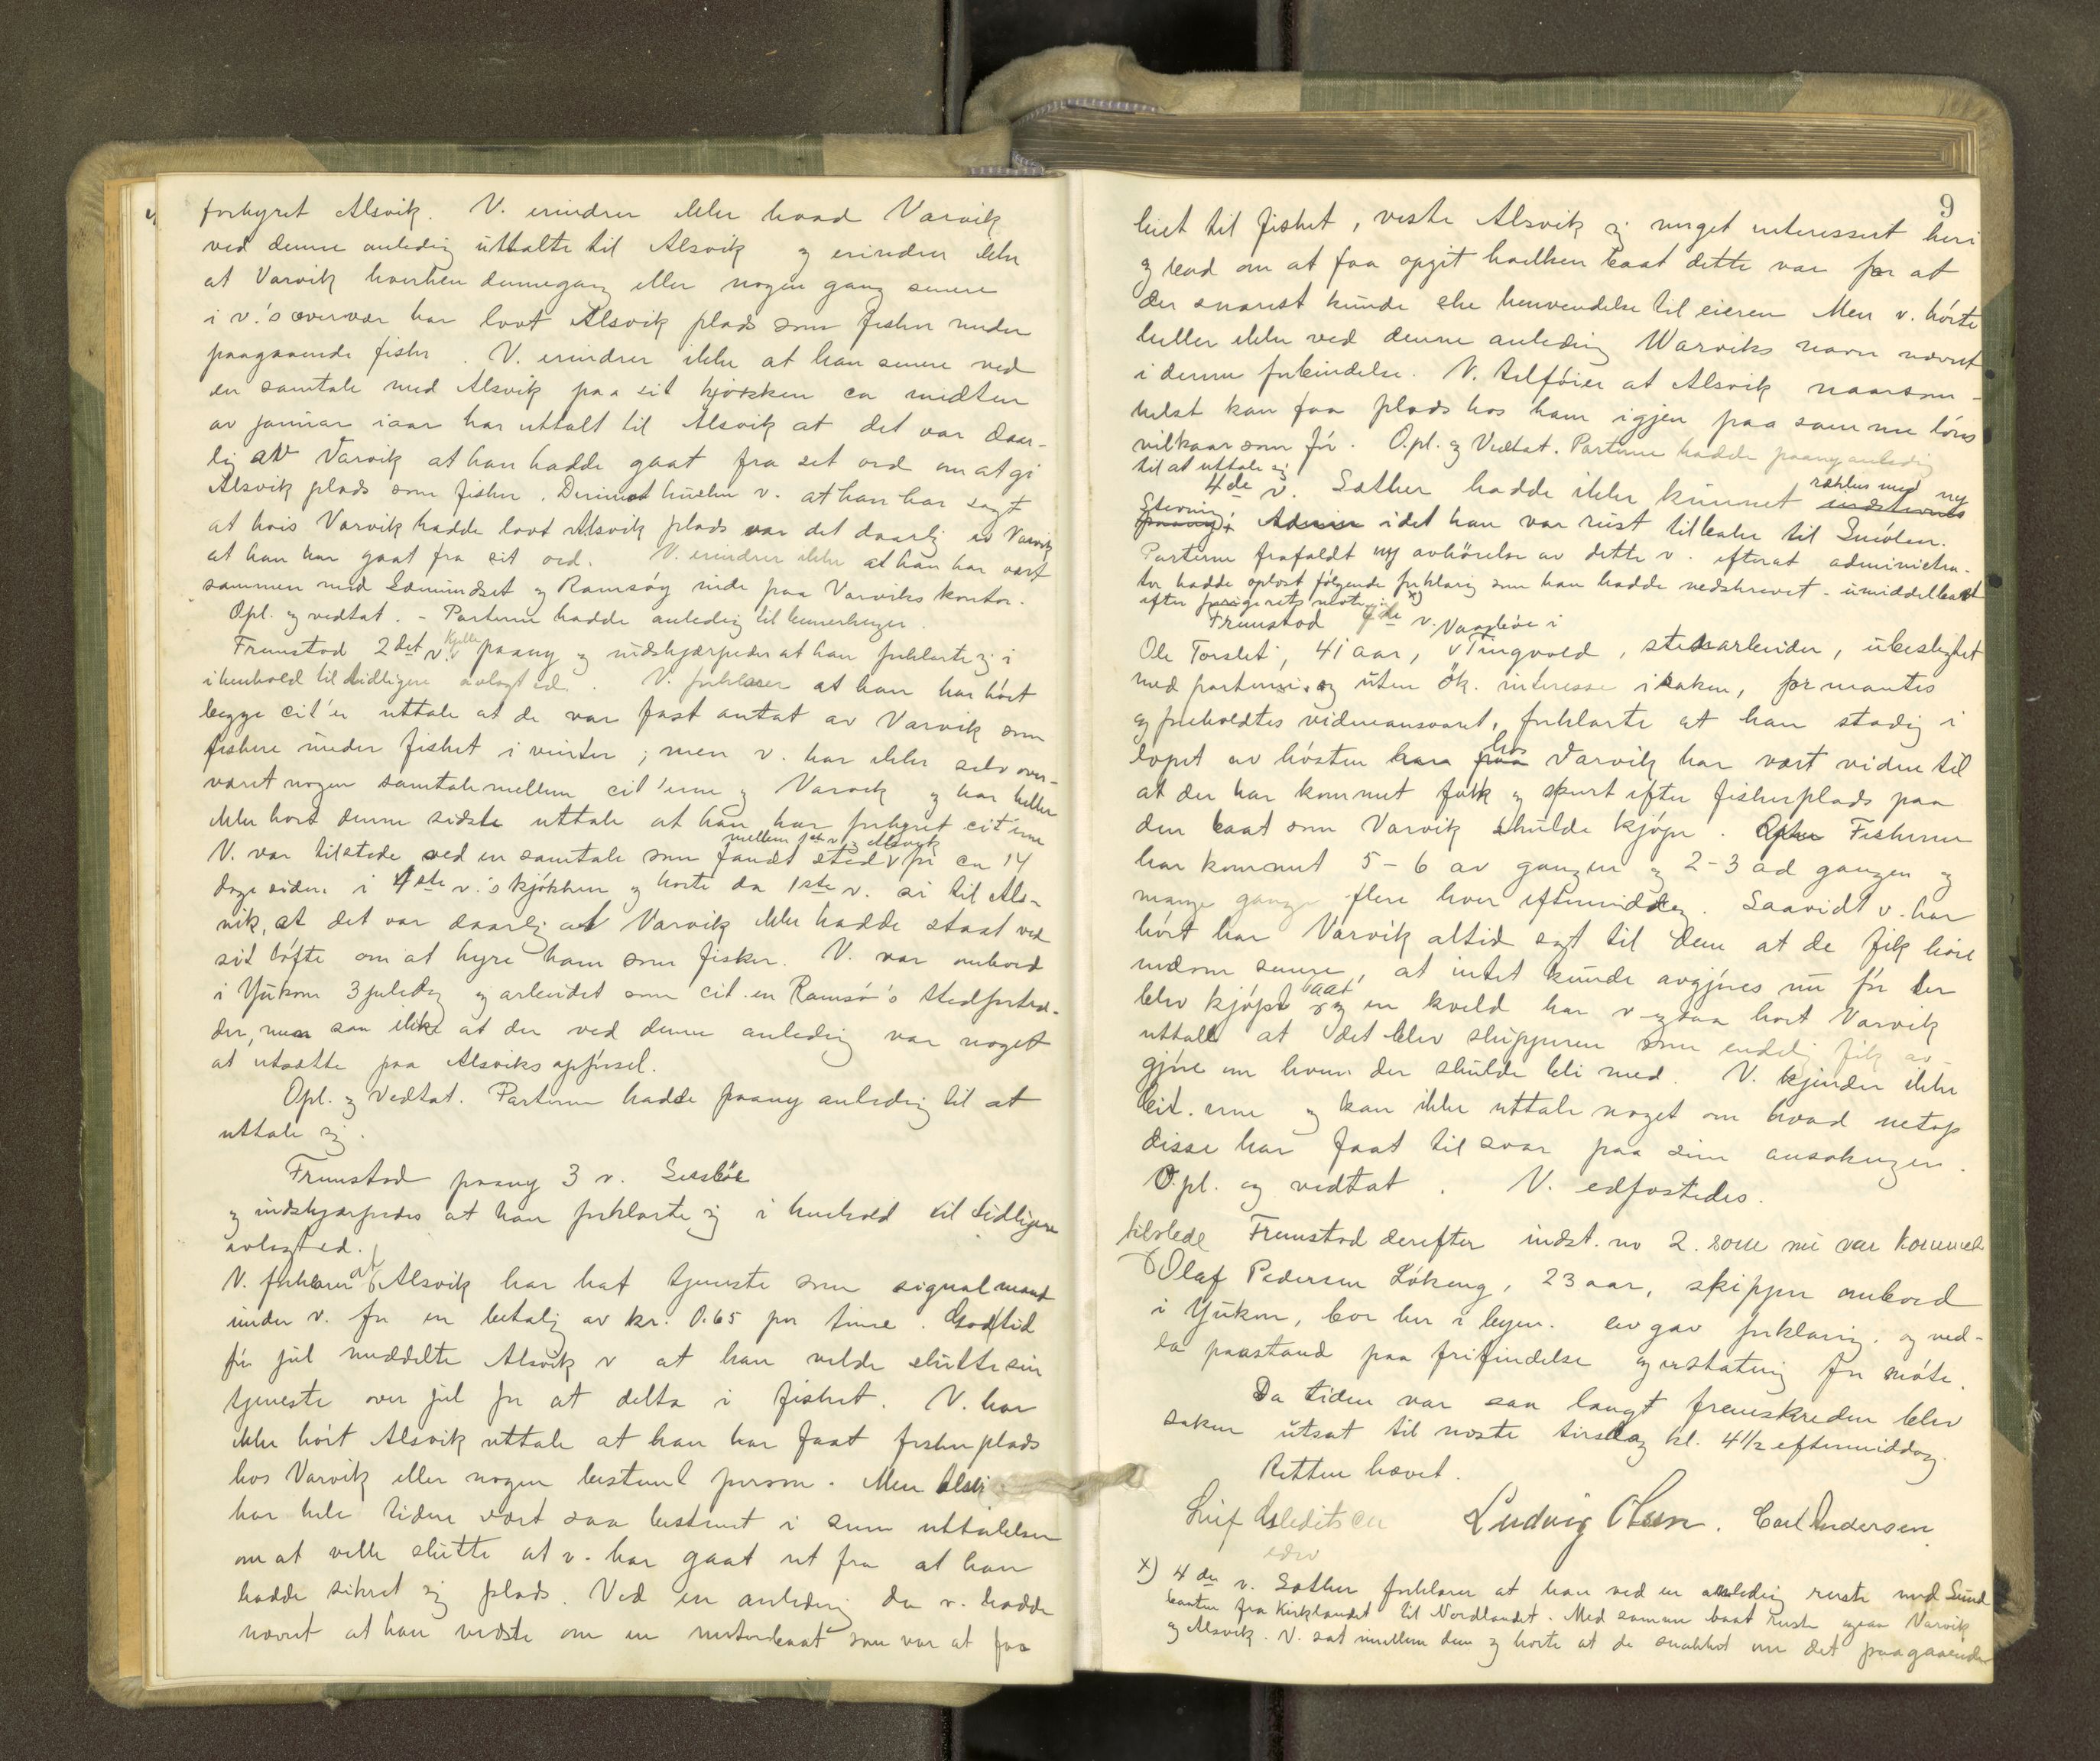 forhyret Alsvik. V. erindrer ikke hvad Varvik
ved denne anledig uttalte til Alsvik og erindrer ikke
at Varvik hverken dennegang eller nogen gang senere
i v.'s overvær har lovt Alsvik plads som fisker under
paagaaende fiske. V. erindrer ikke at han senere ved
en samtale med Alsvik paa sit kjøkken ca midten
av januar iaar har uttalt til Alsvik at det var daar-
lig av Varvik at han hadde gaat fra sit ord om at gi
Alsvik plads som fisker. Derimot husker v. at han har sagt
at hvis Varvik hadde lovt Alsvik plads var det daarlig av Varvik
at han har gaat fra sit ord. V. erindrer ikke at han har vært
sammen med Edmundset og Ramsøy inde paa Varviks kontor.
Opl. og vedtat. - Parterne hadde anledig til bemerkninger.
Fremstod 2det v. paany og indskjærpedes at han forklarte sig i
i henhold til tidligere avlagt ed. V. forklarer at han har hørt
begge cit'er uttale at de var fast antat av Varvik som
fiskere under fisket i vinter; men v. har ikke selv over-
været nogen samtale mellem cit'erne og Varvik og har heller
ikke hørt denne sidste uttale at han har forhyret cit'erne
V. var tilstede ved en samtale som fandt sted v for ca 14
mellem 1ste v. og Alsvik
dage siden i 4de v.'s kjøkken og hørte da 1ste v. si til Als-
vik, at det var daarlig at Varvik ikke hadde staat ved
sit løfte om at hyre ham som fisker. V. var ombord
i Yukon 3 juledag og arbeidet som cit.en Ramsø's stedfortræ-
der, men saa ikke at der ved denne anledig var noget
at utsætte paa Alsviks opførsel.
Opl. og Vedtat. Parterne hadde paany anledig til at
uttale sig.
Fremstod paany 3 v. Sessbøe
og indskjærpedes at han forklarte sig i henhold til tidligere
avlagt ed.
V. forklarer at Alsvik har hat tjeneste som signalmand
under v. for en betalig av kr. 0.65 per time. Godtid
før jul meddelte Alsvik v at han vilde slutte sin
tjeneste over jul for at delta i fisket. V. har
ikke hørt Alsvik uttale at han har faat fiskerplads
hos Varvik eller nogen bestemt person. Men Alsvi
har hele tiden vært saa bestemt i sine uttalelser
om at ville slutte at v. har gaat ut fra at han
hadde sikret sig plads. Ved en anledning da v. hadde
nævnt at han vidste om en motorbaat som var at faa
9
leiet til fisket, viste Alsvik sig meget interessert heri
og bad om at faa opgit hvilken baat dette var for at
der snarest kunde ske henvendelse til eieren Men v. hørte
heller ikke ved denne anledig Warviks navn nævnt
i denne forbindelse. V. tilføier at Alsvik naarsom-
helst kan faa plads hos ham igjen paa samme løns
vilkaar som før. Opl. og Vedtat. Parterne hadde paany anledig
til at uttale sig
4de v. Sæther hadde ikke kunnet rækkes med ny indstevnes
stevning paany; idet han var reist tilbake til Smölen.
Parterne frafaldt ny avhörelse av dette v. efterat administra-
tor hadde oplæst følgende forklarig som han hadde nedskrevet umiddelbart
efter forrige retsmøte x)
Fremstod de v. Nordbøe i
Ole Torset, 41 aar, v Tingvold, stenarbeider, ubeslegtet
med parterne og uten ök. interesse i saken, formantes
og foreholdtes vidneansvaret, forklarte at han stadig i
løpet av høsten hos Varvik har vært vidne til
at der har kommet folk og spurt efter fiskerplads paa
den baat som Varvik skulde kjøpe. Fiskerne
har kommet 5-6 av gangen og 2-3 ad gangen og
mange gange flere hver eftermiddag. Saavidt v. har
hørt har Varvik altid sagt til dem at de fik høre
nedom senere, at intet kunde avgjøres nu før der
blev kjøpt baat og en kveld har v ogsaa hørt Varvik
uttale at det blev skipperen som endelig fik av-
gjøre om hvem der skulde bli med. V. kjender ikke
cit.erne og kan ikke uttale noget om hvad netop
disse har faat til svar paa sine ansøkninger.
Opl. og vedtat. V. edfæstedes.
tilstede Fremstod derefter indst. no 2. som nu var kommet
Olaf Pedersen Løkeng, 23 aar, skipper ombord
i Yukon, bor her i byen. avgav forklaring. og ned-
la paastand paa frifindelse og erstatnig for møte.
Da tiden var saa langt fremskreden blev
saken utsat til næste tirsdag kl. 4½ eftermiddag.
Retten hævet.
Leif Asleditsen Ludvig Olsen. Carl Andersen
edsv
x) 4de v. Sæther forklarer at han ved en anledig reiste med Sund
baaten fra Kirklandet til Nordlandet. Med samme baat reiste ogsaa Varvik
og Alsvik. V. sat imellem dem og hørte at de snakket om det paagaaende